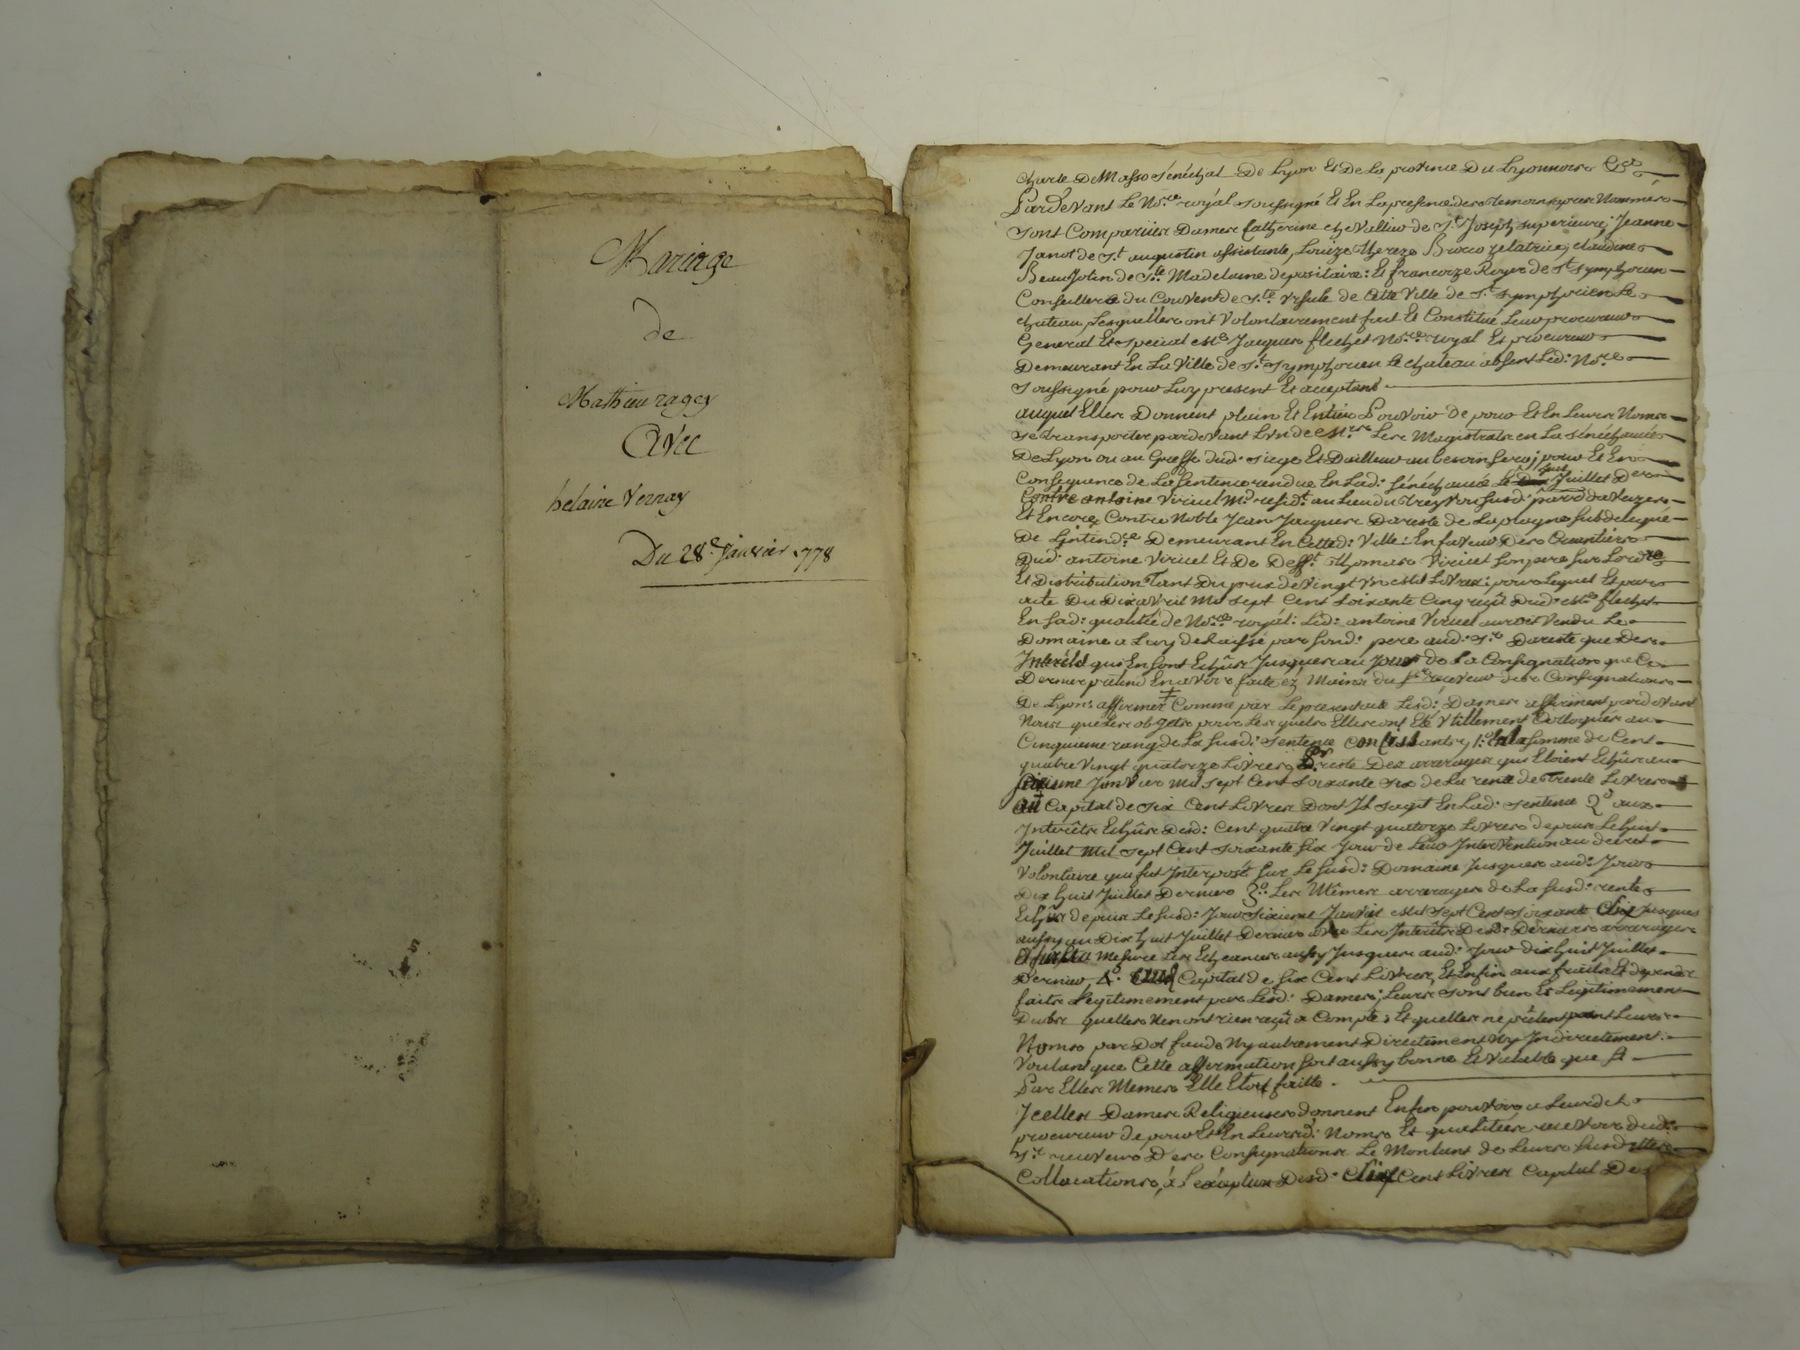 Mariage
de
Mathieu ragey
Avec
helaine Vernay
Du 28e. Janvier 1778
Charle De Masso sénéchal De Lyon Et De La province Du Lyonnois &ca
Pardevant Le Nore. royál soussigné Et En La presence des temoins apres Nommés
sont Comparües Dames Catherine chevallier de St. Joseph superieure, Jeanne
Janot de St. augustin assistante, Louize thereze zelatrice, claudine
Beaujolin de Ste. Madelaine depositaire: Et francoize Royer de St. symphorien
Conseilleres du Couvent de Ste. Ursule de Cette Ville de St. symphorien Le
chateau, Lesquelles ont Volontairement fait Et Constitué Leur procureur
General Et special Me Jaques flechet Nore. royal Et procureur
Demeurant En La Ville de St. symphorien Le chateau absent Led: Nore.
soussigné pour Luy present Et aceptant
auquel Elles Donnent plein Et Entier Pouvoir de pour Et En Leurs Noms
se transporter pardevant L'un de Mrs. Les Magistrats en La sénéchaussée
De Lyon ou au Greffe dud: siege Et Dailleur au besoin sera; pour Et En
Consequence de La sentence rendue En Lad: sénéchaussée Le Juillet Der
Contre antoine Viricel Md. resid. au Lieu du treyve susd: parr
Et Encore Contre Noble Jean Jacques Dareste de Laplagne subdelegué
De Lintendce. Demeurant En Cetted: Ville: En faveur Des Creantiers
Dud: antoine Viricel Et De Defft. thomas Viricel son pere sur Lordre
Et Distribution Tant Du prix de vingt un mil Livres: pour Lequel Et par
acte Du Dix avril Mil sept Cent soixante Cinq reçû Dud: Me flechet
En sad: qualité de Nore. royal: Led: antoine Viricel auroit Vendu Le
Domaine a Luy delaissé par sond: pere aud: Sr. Dareste que Des
Interêts qui En sont Echûs Jusques au Jour de La Consignation que Ce
Dernier prétend En avoir faite ez Mains du Sr. receveur des Consignations
De Lyon: affirmer Comme par Le present acte Lesd: Dames affirment pardevant
Nous que Les objets pour Lesquels Elles ont Eté Utillement Colloquées au
Cinquieme rang de La susd: sentence Consistant 1o: En La somme de Cent
quatre vingt quatorze Livres Pr reste Des arrerages qui Etoient Echûs au
sixieme Janvier Mil sept Cent soixante six de La rente de Trente Livres
au Capital de six Cent Livres Dont Il sagit En Lad: sentence 2o aux
Interêts Echûs Desd: Cent quatre Vingt quatorze Livres depuis Le huit
Juillet Mil sept Cent soixante six Jour de Leur Intervention au decret
Volontaire qui fut Interposé sur Le susd: Domaine Jusques aud: Jour
Dix huit Juillet Dernier 3o: Les Mêmes arrerages de La susd: rente
Echûs depuis Le susd: Jour sixieme Janvier Mil sept Cent soixante six Jusques
aussy au Dix huit Juillet Dernier avec Les Interêts Desd: Derniers arrerages
a mesure des Echeances aussy Jusques aud: Jour dix huit Juillet
Dernier, 4o: Capital de six Cent Livres, Et Enfin aux fraits Et depends
faits Legitimement par Lesd: Dames; Leurs sont bien Et Legitimement
Dubs quelles Nen ont rien reçû a Compte; Et quelles ne prêtent point Leurs
Noms par Dol fraude Ny autrement Directement Ny Indirectement:
Voulant que Cette affirmation soit aussy bonne Et Valable que si
Par Elles Memes Elle Etoit faitte.
Icelles Dames Religieuses donnent Enfin pouvoir a Leurdit
procureur de pour Et En Leursd: Noms Et qualitées recevoir dud:
Sr. receveur Des Consignations Le Montant de Leurs susdittes
Collocations, à L'exception Desd: six Cent Livres Capital De